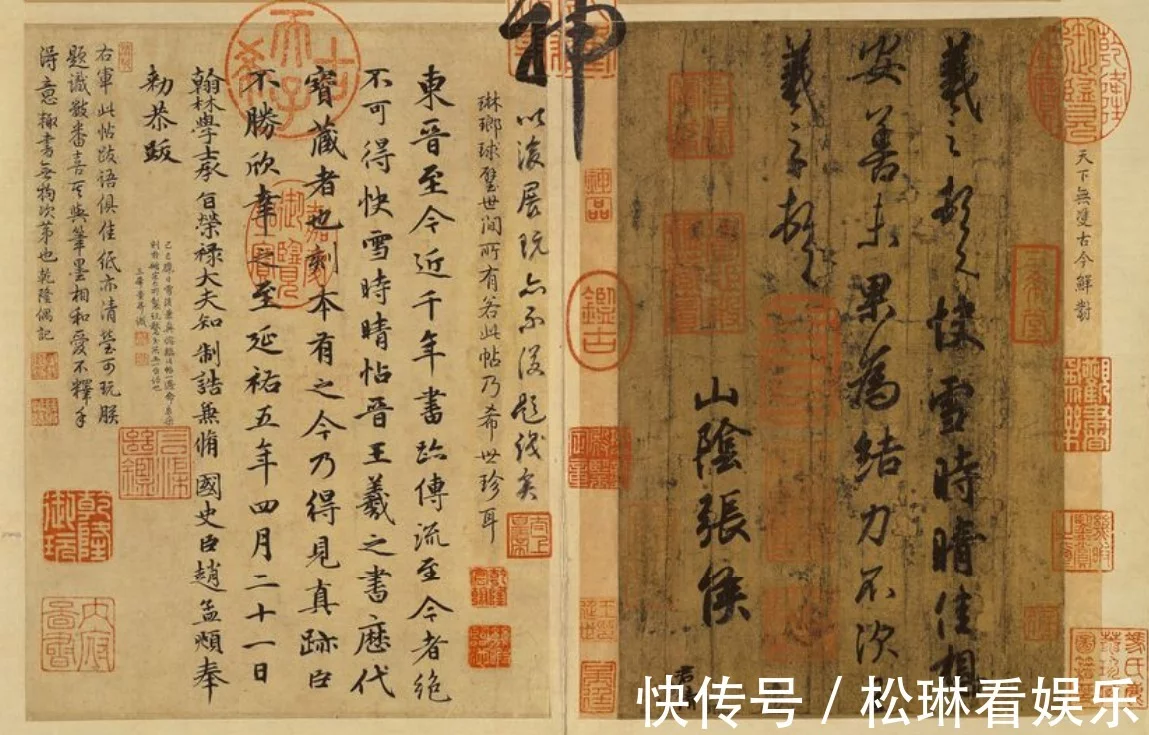 天下無雙古今鮮對
羲之頓首快雪時晴佳想
安善未果為結力不次
羲之頓首
山陰張侯
神
以後展玩亦不復題識矣
琳瑯球璧世間所有若此帖乃希世珍耳
東晉至今近千年書跡傳流至今者絕
不可得快雪時晴帖晉王羲之書歷代
寶藏者也刻本有之今乃得見真跡臣
不勝欣幸之至延祐五年四月二十一日
翰林學士承旨榮祿大夫知制誥兼脩國史臣趙孟頫奉
勑恭跋
右軍此帖跋語俱佳紙亦清瑩可玩朕
題識數番喜其與筆墨相和愛不釋手
得意輒書無拘次第也乾隆偶記
神品
鑒古
古希天子
嘉慶御覽之寶
乾隆御玩
快传号 / 松琳看娱乐